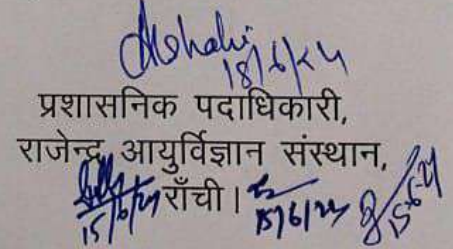 18/6/24
प्रशासनिक पदाधिकारी,
राजेन्द्र आयुर्विज्ञान संस्थान,
राँची।
15/6/24 15/6/24 15-6-24